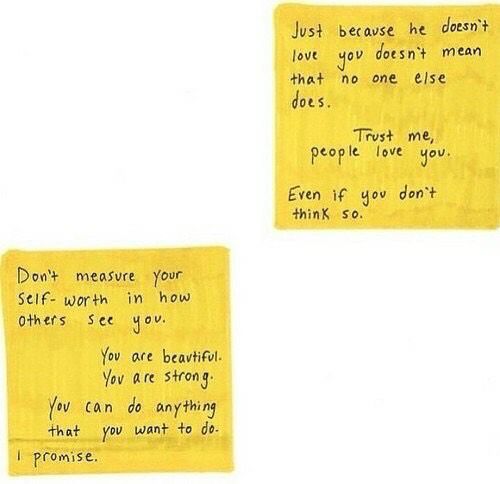 Just because he doesn't
love you doesn't mean
that no one else
does.
Trust me,
people love you.
Even if you don't
think so.
Don't measure your
self-worth in how
others see you.
You are beautiful.
You are strong.
You can do anything
that you want to do.
I promise.